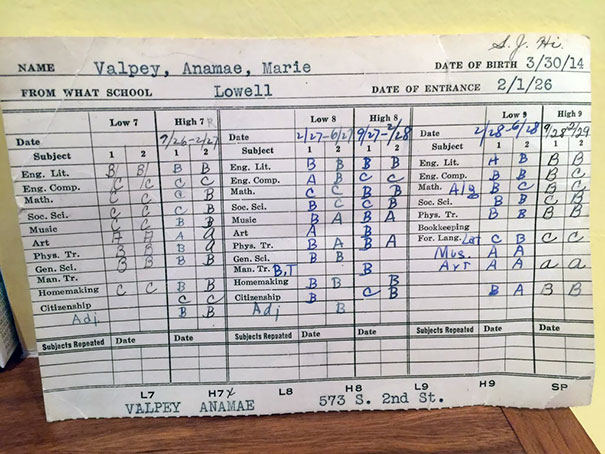 S. J. Hi.
NAME Valpey, Anamae, Marie DATE OF BIRTH 3/30/14
FROM WHAT SCHOOL Lowell DATE OF ENTRANCE 2/1/26
Low 7 High 7 Low 8 High 8 Low 9 High 9
Date 9/26-2/27 Date 2/27-6/27 9/27-2/28 Date 2/28-6/28 9/28 2/29
Subject 1 2 1 2 Subject 1 2 1 2 Subject 1 2 1 2
Eng. Lit. B B B B Eng. Lit. B B B B Eng. Lit. A B B B
Eng. Comp. C C C C Eng. Comp. A B C C Eng. Comp. B B B C
Math. C C C B Math. C C B B Math. Alg B C B C
Soc. Sci. C C B B Soc. Sci. B C C B Soc. Sci. B B C B
Music C C Music B A B A Phys. Tr. B B B B
Art A A A Art A B Bookkeeping
Phys. Tr. B B B Phys. Tr. B A B A For. Lang. Lat C B C C
Gen. Sci. B B B B Gen. Sci. B B Mus. A A
Man. Tr. Man. Tr. B,T B Art A A a a
Homemaking C C B B Homemaking B B B B A B B
Citizenship C C Citizenship B C B
Adj B B Adj B
Subjects Repeated Date Date Subjects Repeated Date Date Subjects Repeated Date Date
L7 H7 L8 H8 L9 H9 SP
VALPEY ANAMAE 573 S. 2nd St.